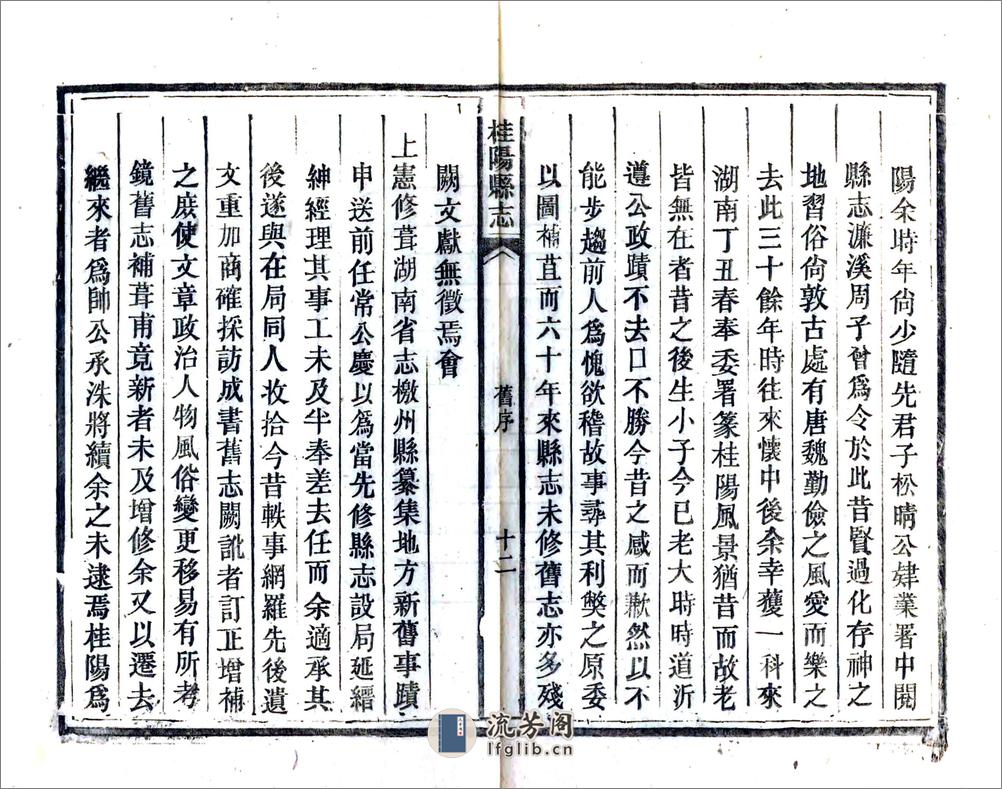 陽余時年尙少隨先君子松晴公肄業署中閱
縣志濂溪周子曾爲令於此昔賢過化存神之
地習俗尙敦古處有唐魏勤儉之風愛而樂之
去此三十餘年時往來懷中後余幸獲一科來
湖南丁丑春奉委署篆桂陽風景猶昔而故老
皆無在者昔之後生小子今已老大時時道沂
遵公政蹟不去口不勝今昔之感而歉然以不
能步趨前人爲愧欲稽故事尋其利獘之原委
以圖補苴而六十年來縣志未修舊志亦多殘
桂陽縣志
舊序
十二
闕文獻無徵焉會
上憲修葺湖南省志檄州縣纂集地方新舊事蹟
申送前任常公慶以爲當先修縣志設局延縉
紳經理其事工未及半奉差去任而余適承其
後遂與在局同人收拾今昔軼事網羅先後遺
文重加商確採訪成書舊志闕訛者訂正增補
之庶使文章政治人物風俗變更移易有所考
鏡舊志補葺甫竟新者未及增修余又以遷去
繼來者爲帥公承洙將續余之未逮焉桂陽爲
流芳阁
lfglib.cn